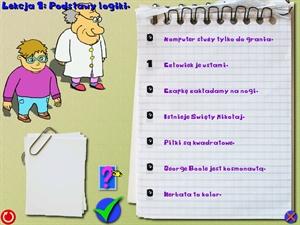 Lekcja 8: Podstawy logiki.
0 Komputer służy tylko do grania.
1 Człowiek je ustami.
0 Czapkę zakładamy na nogi.
0 Istnieje Święty Mikołaj.
0 Piłki są kwadratowe.
0 George Boole jest kosmonautą.
0 Herbata to kolor.